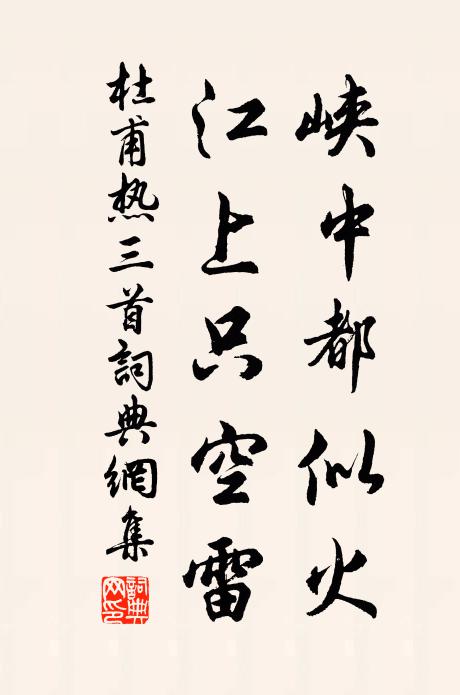 峽中都似火
江上只空雷
杜甫熱三首詞典網集
詞典网印